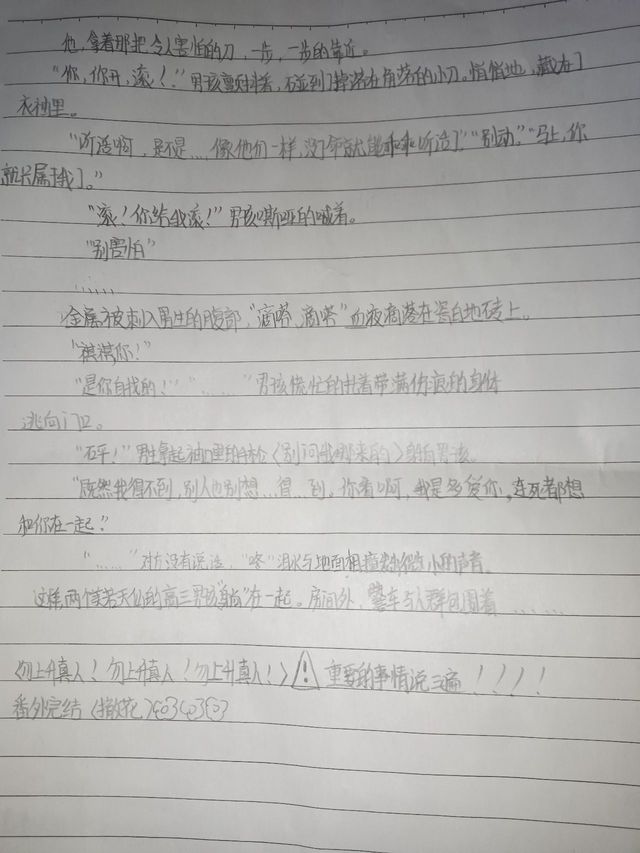 他,拿着那把令人害怕的刀,一步,一步的靠近。
"你,你开,滚!"男孩颤抖着,碰到了掉落在角落的小刀。悄悄地,藏在了
衣袖里。
"听话啊,是不是...像他们一样,没了命就能乖乖听话了""别动。""马上,你
就只属于我了。"
"滚!你给我滚!"男孩嘶哑的喊着。
"别害怕"
......
金属被刺入男生的腹部,"滴嗒,滴嗒"血液滴落在瓷白地砖上。
"祺祺,你!"
"是你自找的!""......"男孩慌忙的扯着带满伤痕的身体
逃向门口。
"砰!"男生拿起袖口里的手枪(别问我哪来的)射向男孩
"既然我得不到,别人也别想...得到。你看啊,我是多爱你,连死都想
和你在一起?"
"......"对方没有说话,"咚"泪水与地面相撞发出微小的声音。
这样,两个美若天仙的高三男孩"躺"在一起。房间外,警车与人群包围着......
(勿上升真人!勿上升真人!勿上升真人!)⚠重要的事情说三遍!!!!
番外完结(撒花)